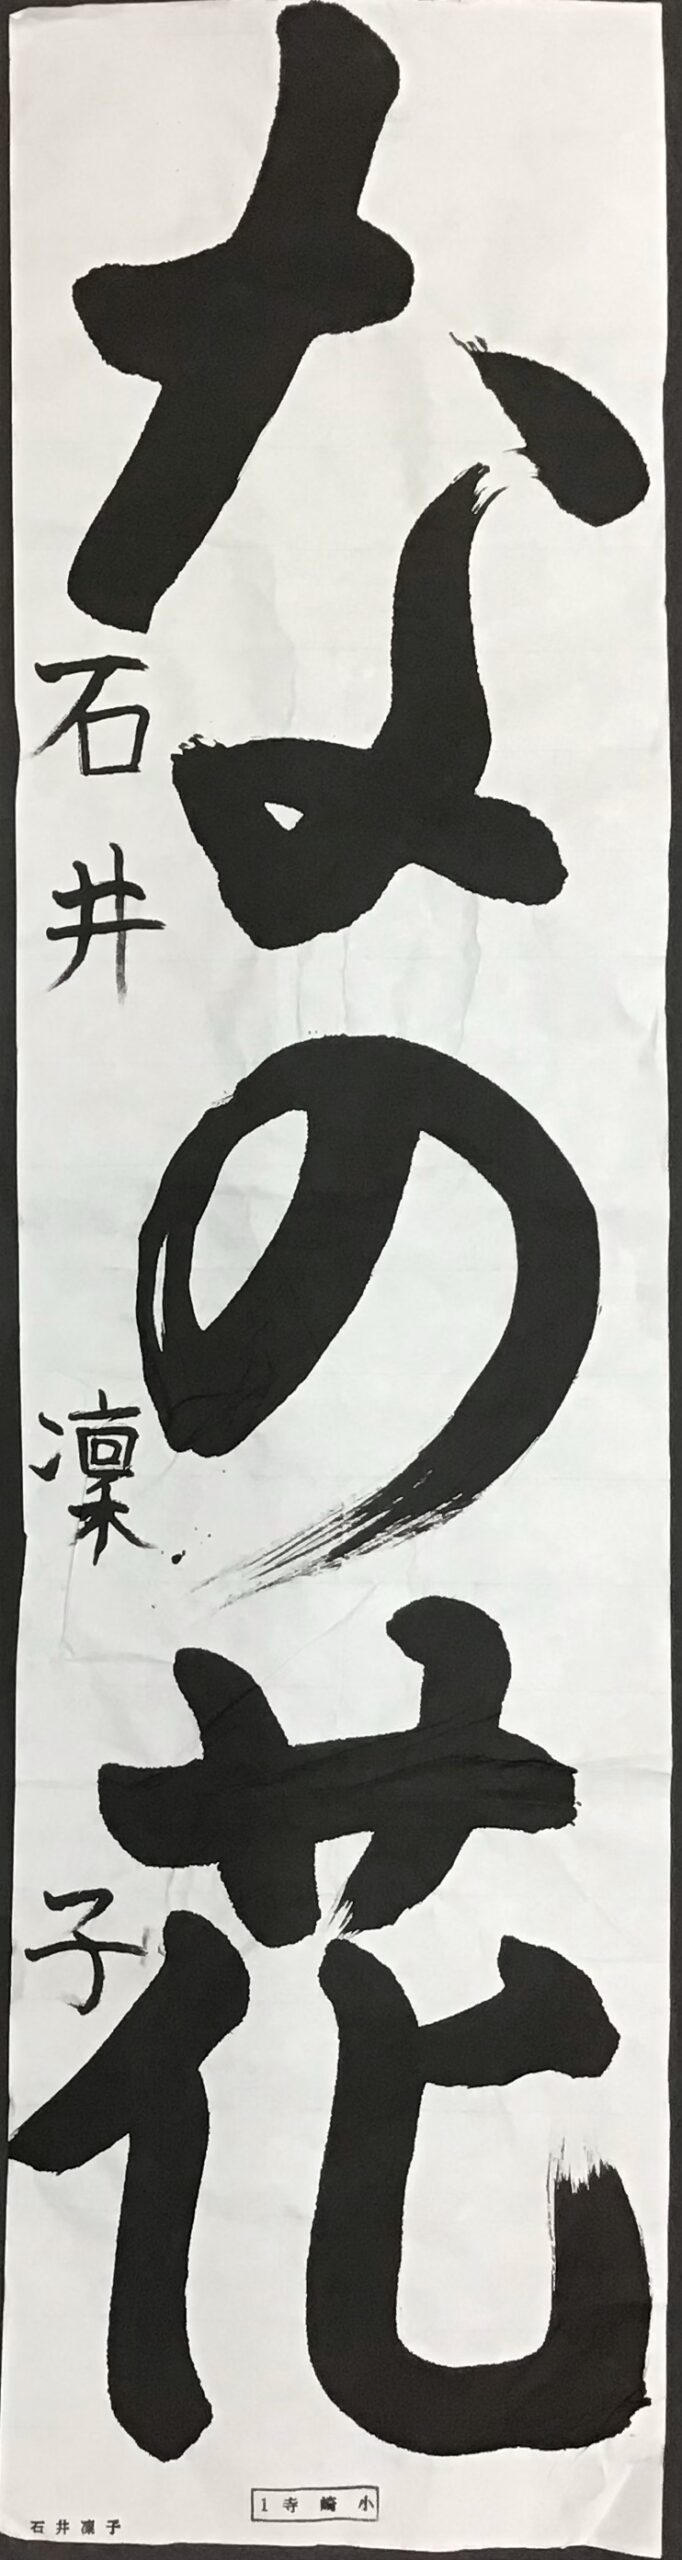 なの花
石井凜子
1 寺崎小
石井凜子